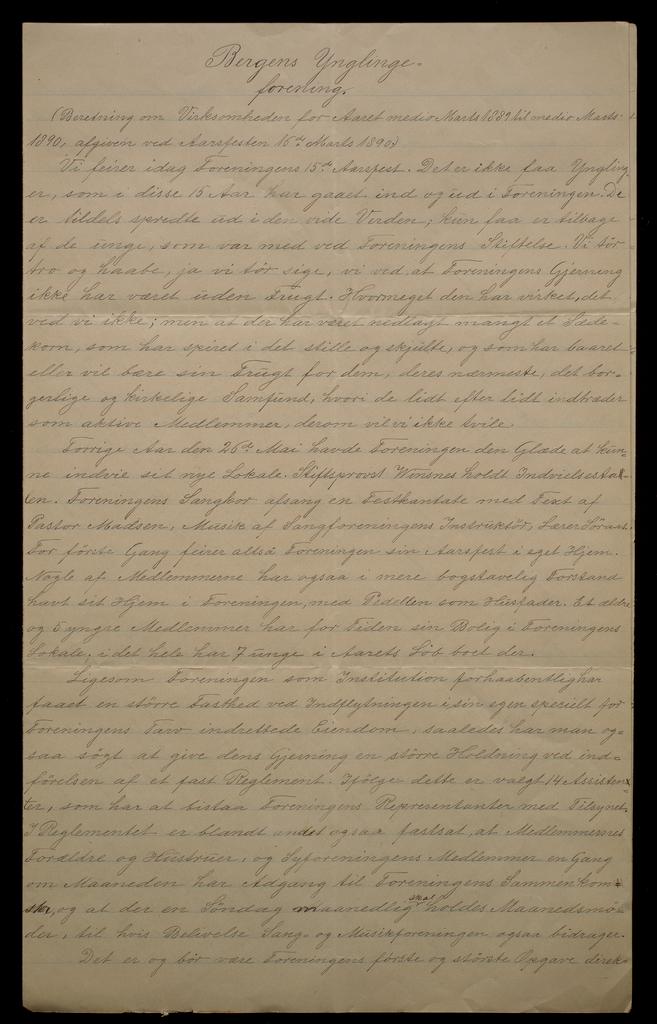 Bergens Ynglinge-
forening.
(Beretning om Virksomheden for Aaret medio Marts 1889 til medio Marts
1890, afgiven ved Aarsfesten 16de Marts 1890)
Vi feirer idag Foreningens 15de Aarsfest. Det er ikke faa Yngling-
er, som i disse 15 Aar har gaaet ind og ud i Foreningen. De
er tildels spredte ud i den vide Verden; kun faa er tilbage
af de unge, som var med ved Foreningens Stiftelse. Vi tör
tro og haabe, ja vi tör sige, vi ved, at Foreningens Gjerning
ikke har været uden Frugt. Hvormeget den har virket, det
ved vi ikke; men at der har været nedlagt mangt et Sæde-
korn, som har spiret i det stille og skjulte, og som har baaret
eller vil bære sin Frugt for dem, deres nærmeste, det bor-
gerlige og kirkelige Samfund, hvori de lidt efter lidt indtræder
som aktive Medlemmer, derom vil vi ikke tvile.
Forrige Aar den 26de Mai havde Foreningen den Glæde at kun-
ne indvie sit nye Lokale. Stiftsprovst Winsnes holdt Indvielsesta-
len. Foreningens Sangkor afsang en Festkantate med Text af
Pastor Madsen, Musik af Sangforeningens Instruktör, Lærer
For förste Gang feirer altsaa Foreningen sin Aarsfest i eget Hjem.
Nogle af Medlemmerne har ogsaa i mere bogstavelig Forstand
havt sit Hjem i Foreningen, med Pedellen som Husfader. Et ældre
og 5 yngre Medlemmer har for Tiden sin Bolig i Foreningens
Lokale; i det hele har 7 unge i Aarets Löb boet der.
Ligesom Foreningen som Institution forhaabentlig har
faaet en större Fasthed ved Indflytningen i sin egen specielt for
Foreningens Tarv indrettede Eiendom, saaledes har man og-
saa sögt at give dens Gjerning en större Holdning ved ind-
förelsen af et fast Reglement. Ifölge dette er valgt 14 Assisten-
ter, som har at bistaa Foreningens Representanter med Tilsynet.
I Reglementet er blandt andet ogsaa fastsat, at Medlemmernes
Forældre og Hustruer, og Syforeningens Medlemmer en Gang
om Maaneden har Adgang til Foreningens Sammenkom-
ster, og at der en Söndag maanedlig skal holdes Maanedsmö-
der, til hvis Belivelse Sang- og Musikforeningen ogsaa bidrager.
Det er og bör være Foreningens förste og störste Opgave direk-